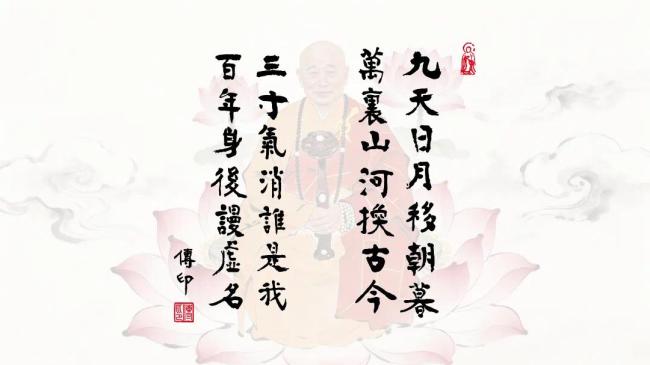 九天日月移朝暮
萬裏山河换古今
三寸氣消誰是我
百年身後謾虛名
傳印